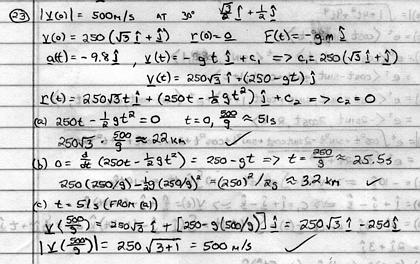 (23) |v(0)| = 500 m/s AT 30° √3/2 î + 1/2 ĵ
v(0) = 250 (√3 î + ĵ) r(0) = 0 F(t) = -gm ĵ
a(t) = -9.8 ĵ, v(t) = -g t ĵ + c₁ => c₁ = 250 (√3 î + ĵ)
v(t) = 250√3 î + (250 - gt) ĵ
r(t) = 250√3 t î + (250t - ½gt²) ĵ + c₂ => c₂ = 0
(a) 250t - ½gt² = 0 t = 0, 500/g ≈ 51s
250√3 · 500/g ≈ 22 km ✓
(b) 0 = d/dt (250t - ½gt²) = 250 - gt => t = 250/g ≈ 25.5s
250 (250/g) - ½g (250/g)² = (250)²/2g ≈ 3.2 km ✓
(c) t = 51s (FROM (a))
v(500/g) = 250√3 î + [250 - g(500/g)] ĵ = 250√3 î - 250 ĵ
|v(500/g)| = 250 √3+1 = 500 m/s ✓